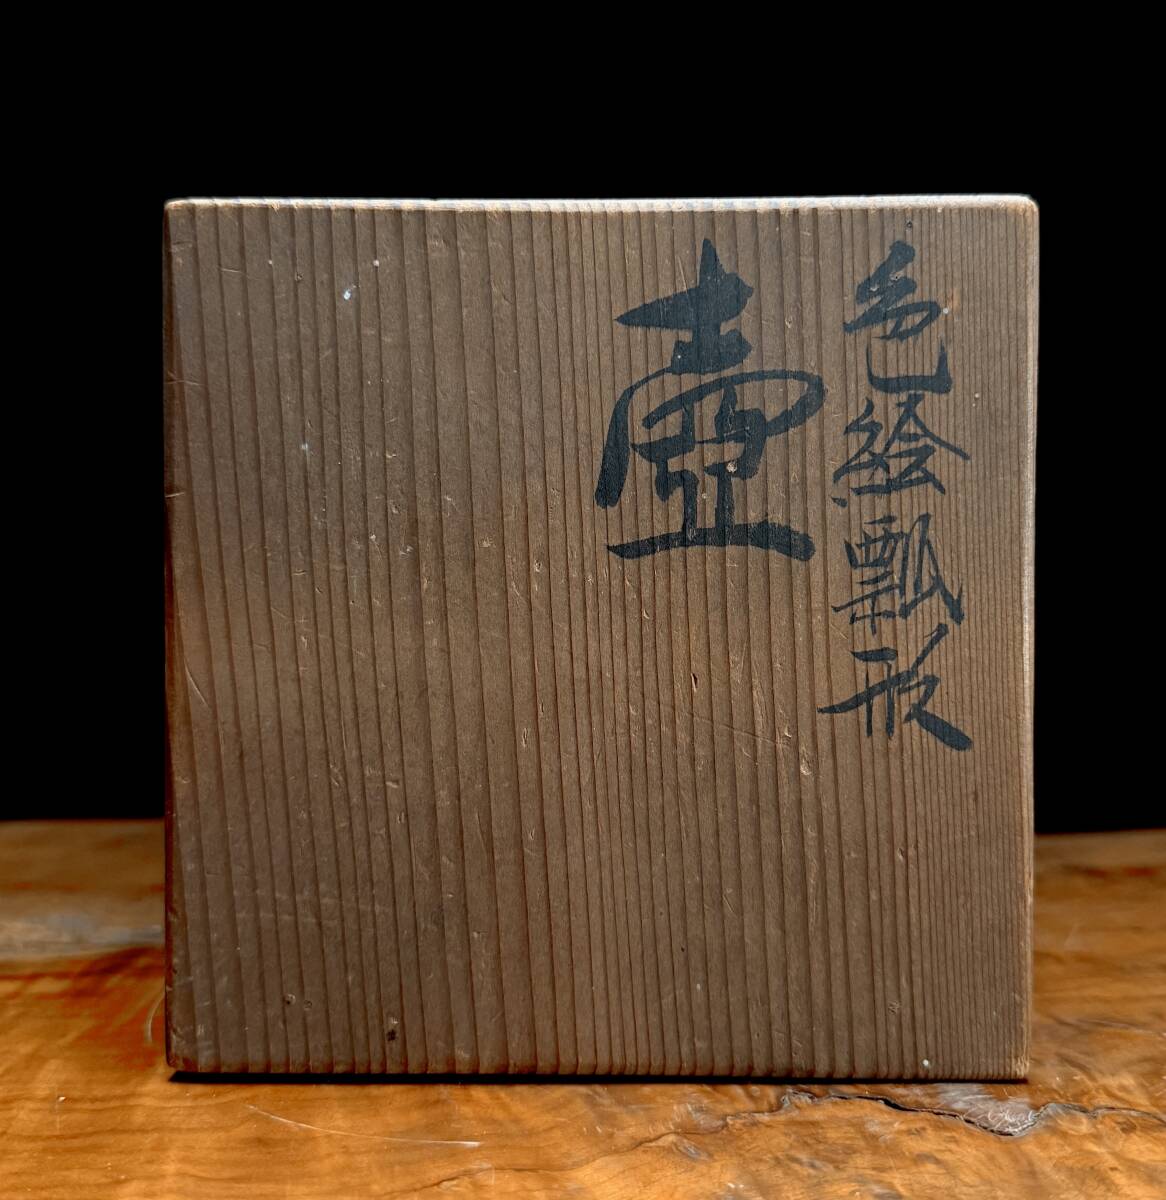 色絵瓢形
壷